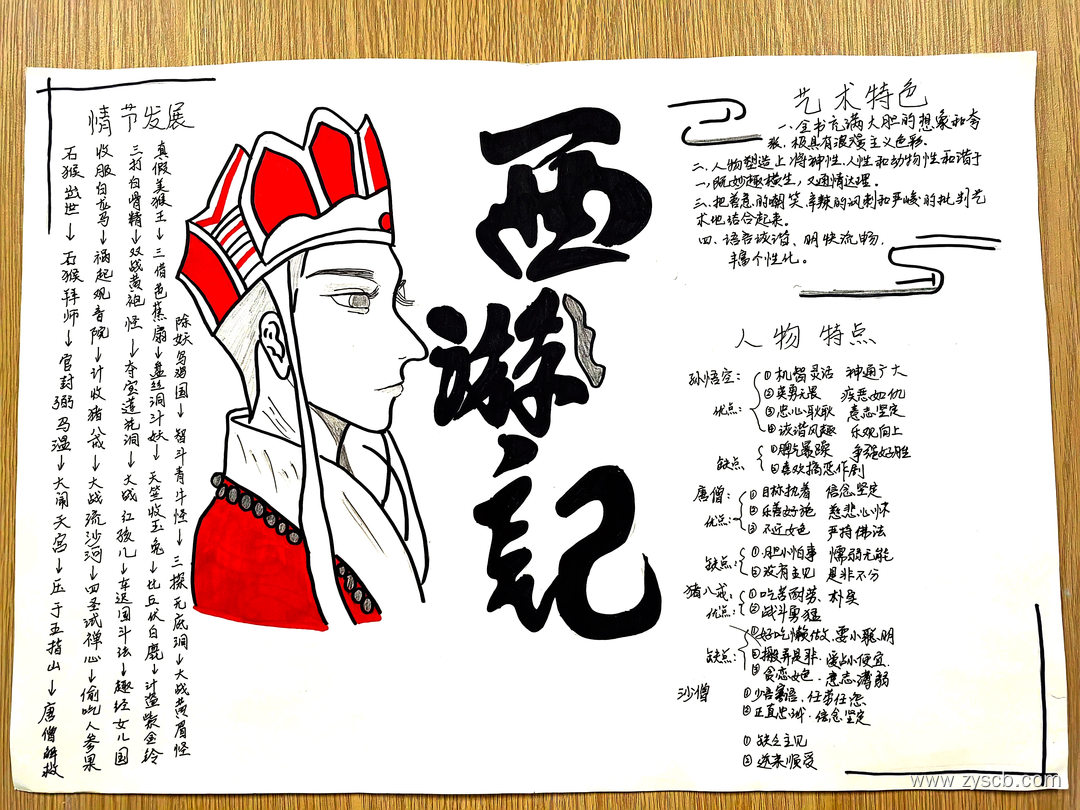 情节发展
石猴出世→石猴拜师→官封弼马温→大闹天宫→压于五指山→唐僧解救
收服白龙马→祸起观音院→计收猪八戒→大战流沙河→四圣试禅心→偷吃人参果
三打白骨精→双战黄袍怪→夺宝莲花洞→大战红孩儿→车迟国斗法→趣经女儿国
真假美猴王→三借芭蕉扇→盘丝洞斗妖→天竺收玉兔→比丘伏白鹿→计盗紫金铃
除妖乌鸡国→智斗青牛怪→三探无底洞→大战黄眉怪
西游記
艺术特色
一、全书充满大胆的想象和夸
张,极具有浪漫主义色彩.
二、人物塑造上将神性、人性和动物性和谐于
一,既妙趣横生,又通情达理。
三、把善意的嘲笑、辛辣的讽刺和严峻的批判艺
术地结合起来。
四、语言诙谐、明快流畅,
丰富个性化。
人物特点
孙悟空:
优点:
①机智灵活 神通广大
②英勇无畏 疾恶如仇
③忠心耿耿 意志坚定
④诙谐风趣 乐观向上
缺点
①脾气暴躁 争强好胜
②喜欢搞恶作剧
唐僧:
优点:
①目标执着 信念坚定
②乐善好施 慈悲心怀
③不近女色 严持佛法
缺点:
①胆小怕事 懦弱无能
②没有主见 是非不分
猪八戒:
优点:
①吃苦耐劳、朴实
②战斗勇猛
缺点:
①好吃懒做、耍小聪明
②搬弄是非、爱占小便宜
③贪恋女色、意志薄弱
沙僧
①少言寡语、任劳任怨
②正直忠诚、信念坚定
①缺乏主见
②逆来顺受
www.zyscb.com